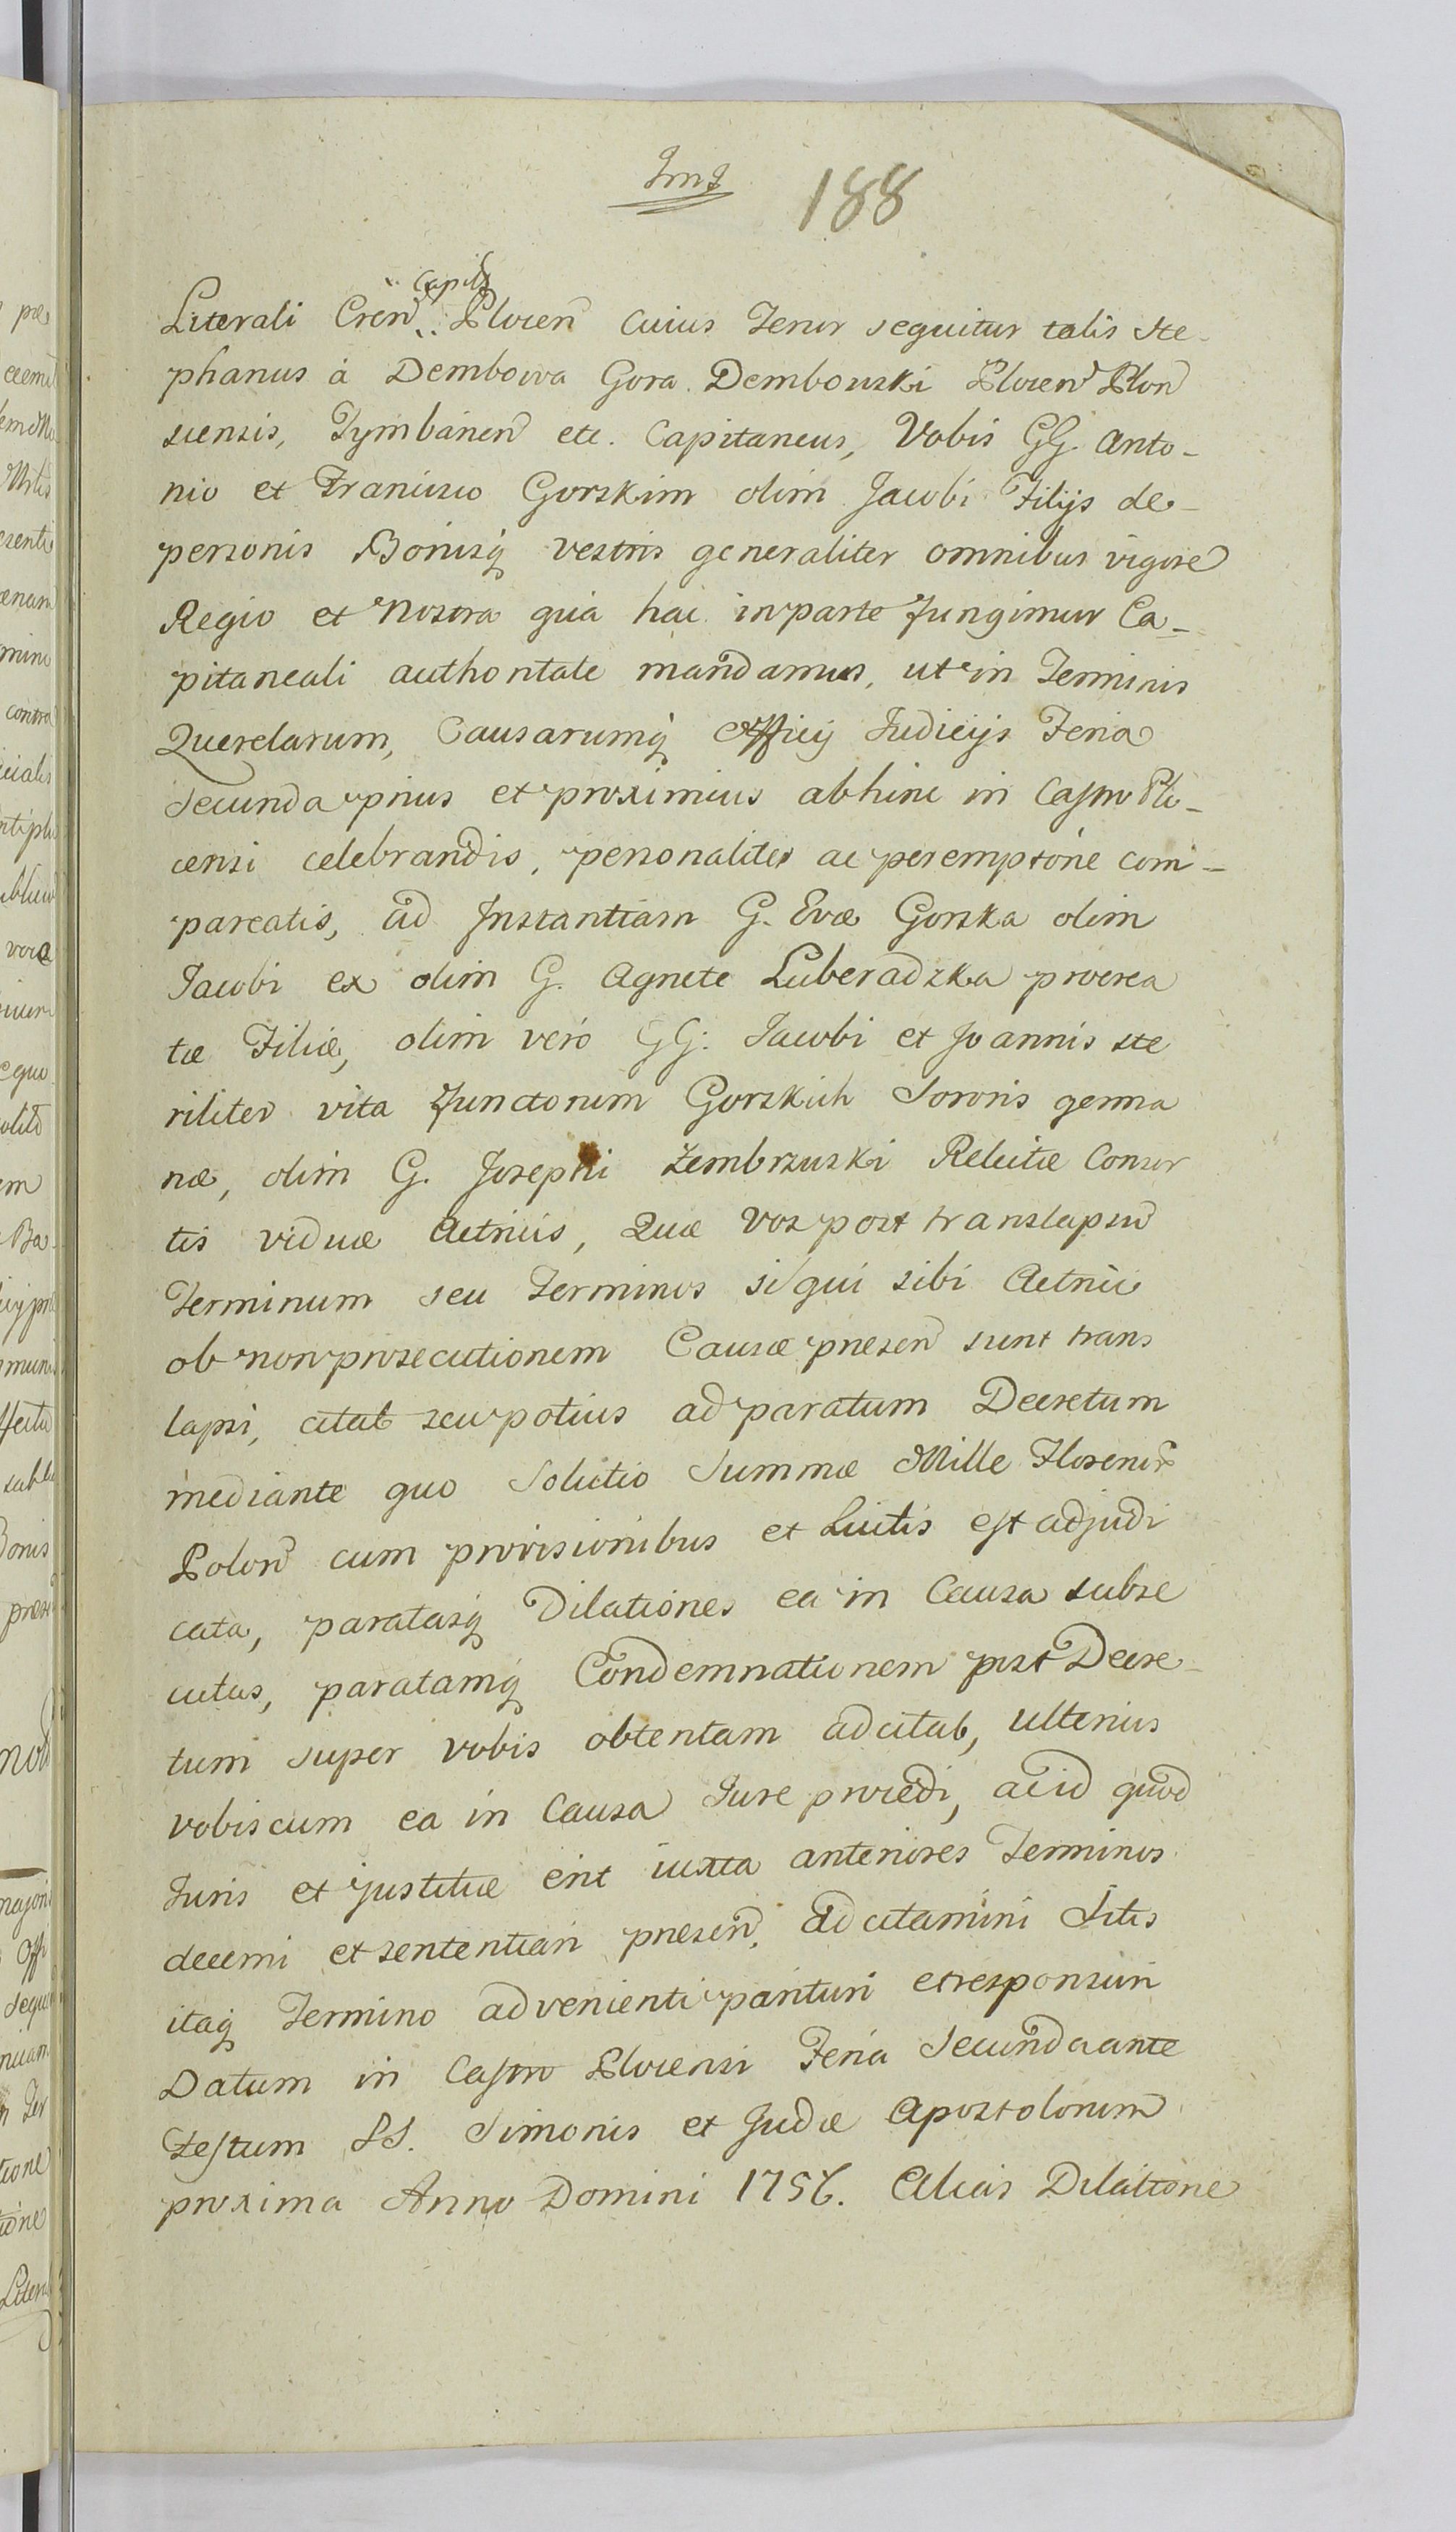 188
Capit
Literali Cren Plocen Cuius Tenor sequitur talis Ste-
phanus à Dembowa Gora Dembowski Plocen Plon
scensis, Tymbarien etc. Capitaneus, Vobis GG. Anto-
nio et Francisco Gorskim olim Jacobi Filijs de
personis Bonisq vestris generaliter omnibus vigore
Regio et Nostra quia hac in parte fungimur Ca-
pitaneali authoritate mandamus, ut in Terminis
Querelarum, Causarumq Officij Judicijs Feria
Secunda prius et proximius abhinc in Castro Plo-
censi celebrandis, personaliter ac peremptorie com-
pareatis, ad Instantiam G. Evæ Gorska olim
Jacobi ex olim G. Agnete Luberadzka procrea
tæ Filiæ, olim vero GG. Jacobi et Joannis ste
riliter vita functorum Gorskich Sororis germa
næ, olim G. Josephi Zembrzuski Relictæ Consor
tis viduæ Actricis, Quæ vos post translapsum
Terminum seu Terminos si qui sibi Actrici
ob non prosecutionem Causæ presen sunt trans
lapsi, citat seu potius ad paratum Decretum
mediante quo Solutio Summæ Mille Florenor
Polon cum provisionibus et Luitis est adjudi
cata, paratasq Dilationes ea in Causa subse
cutas, paratamq Condemnationem post Decre-
tum super vobis obtentam adcitat, ulterius
vobiscum ea in Causa Jure procedi, ac id quod
Juris et justitiæ erit iuxta anteriores Terminos
decerni et sententiari presen, adcitamini Sitis
itaq Termino advenienti parituri et responsuri
Datum in Castro Plocensi Feria Secunda ante
Festum SS. Simonis et Judæ Apostolorum
proxima Anno Domini 1756. Alias Dilatione